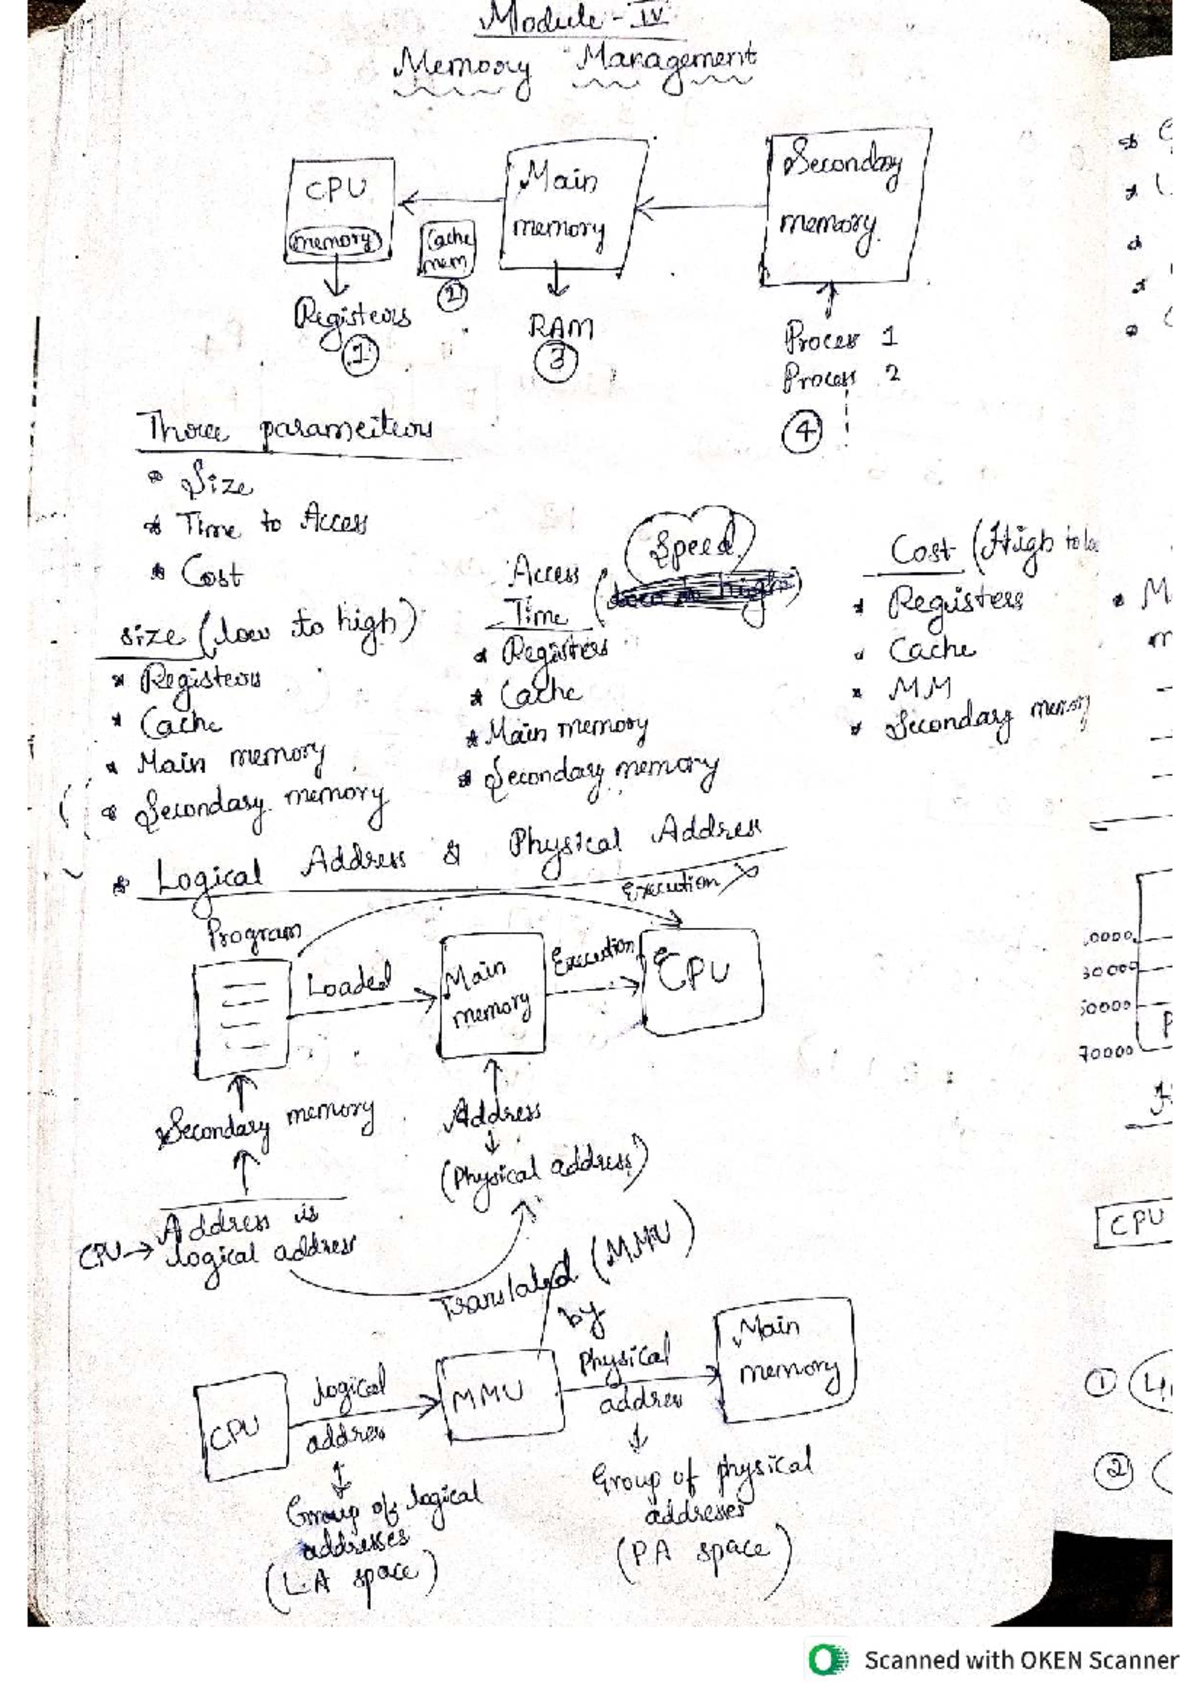 Module - IV
Memory Management
CPU
memory
Cache
mem
2
Main
memory
Secondary
memory.
Registers
1
RAM
3
Process 1
Process 2
4
Three parameters
* Size
* Time to Access
* Cost
size (low to high)
* Registers
* Cache
* Main memory
* Secondary memory
Access
Time (
Speed
)
* Registers
* Cache
* Main memory
* Secondary memory
Cost (High to lo
* Registers
* Cache
* MM
* Secondary memory
* M
* Logical Address & Physical Address
Execution X
Program
Loaded
Main
memory
Execution
CPU
Secondary memory
Address
(Physical address)
CPU → Address is
logical address
Translated (MMU)
by
CPU
logical
address
MMU
Physical
address
Main
memory
Group of logical
addresses
(LA space)
Group of physical
addresses
(PA space)
0000
30000
50000
70000
CPU
1
2
Scanned with OKEN Scanner